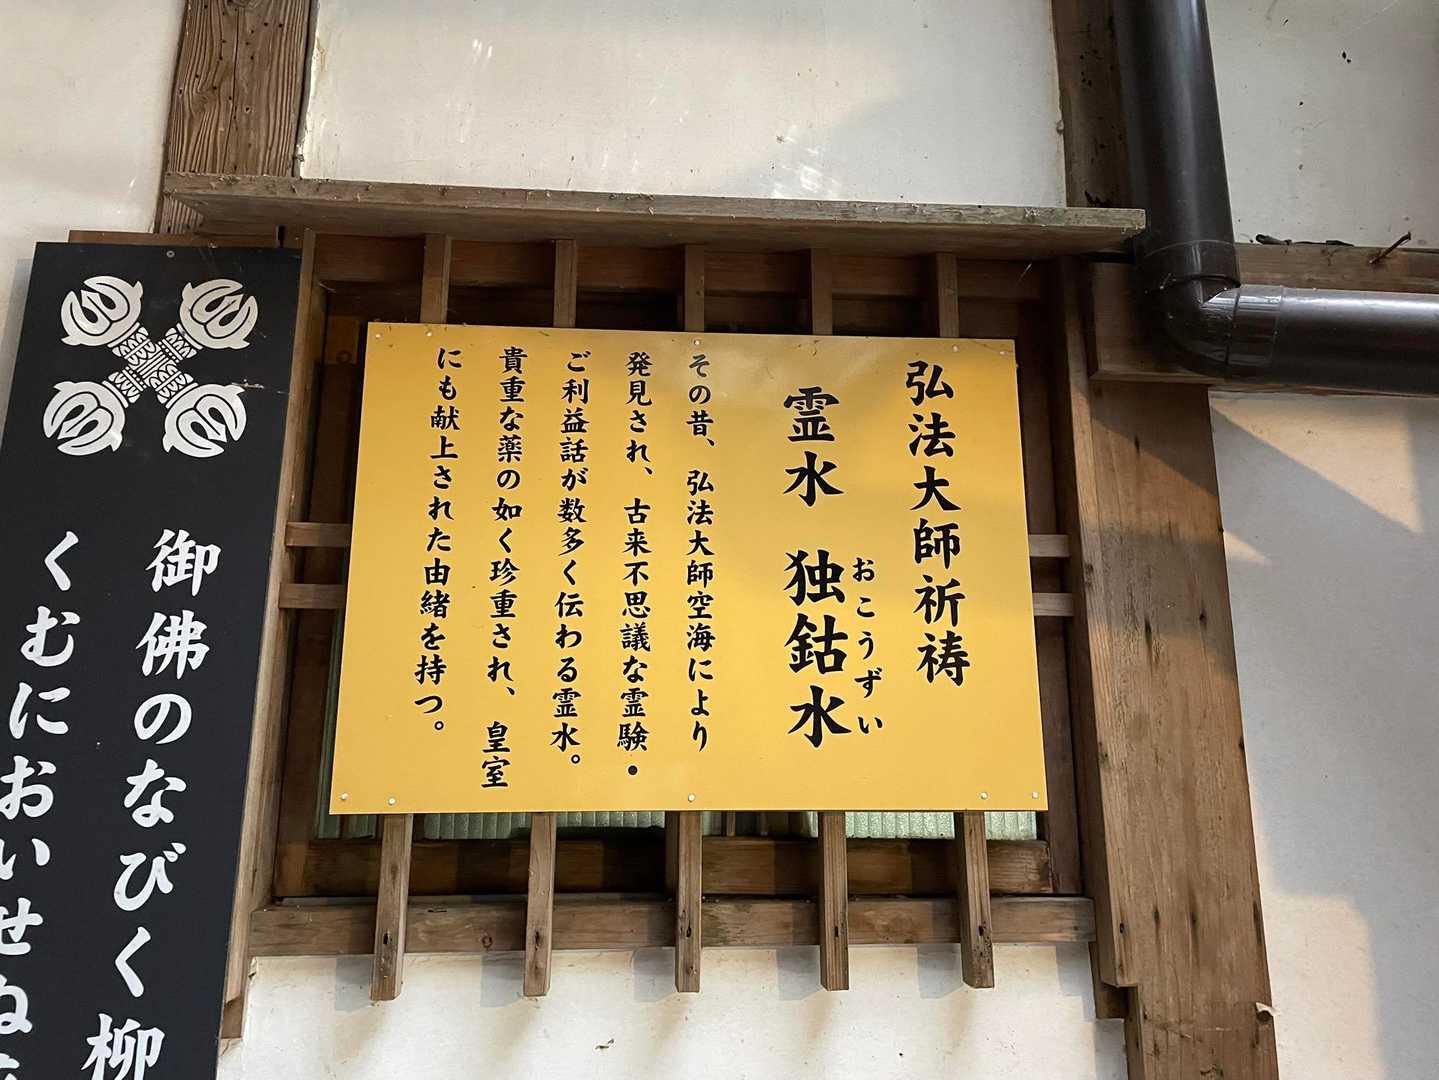 弘法大師祈祷
霊水 独鈷水
おこうずい
その昔、弘法大師空海により
発見され、古来不思議な霊験・
ご利益話が数多く伝わる霊水。
貴重な薬の如く珍重され、皇室
にも献上された由緒を持つ。
御佛のなびく柳
くむにおいせぬ